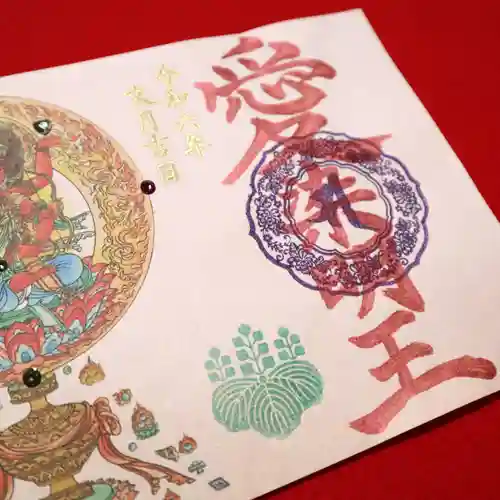 愛染明王
令和六年
六月吉日